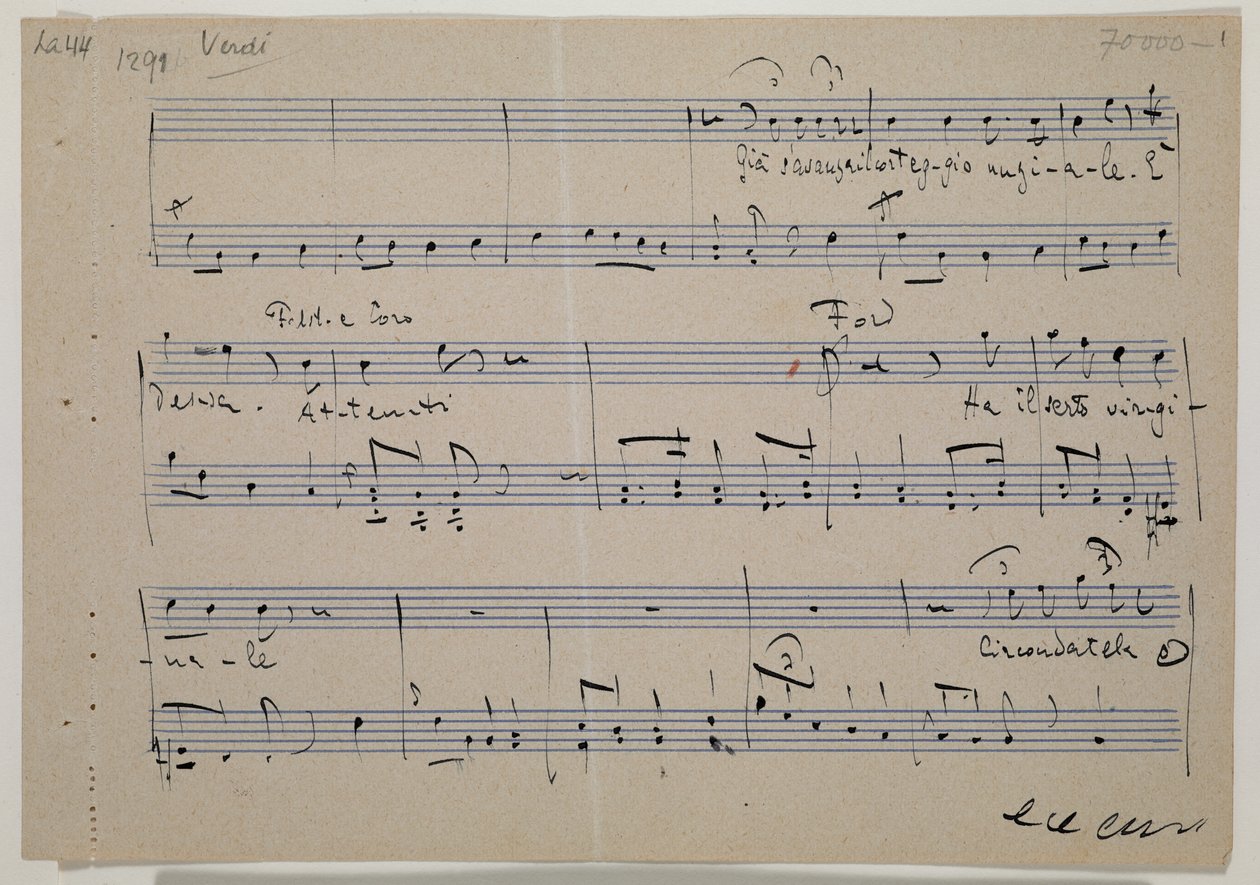 La 44
1291
Verdi
70000-
Già s'avanza il corteg-gio nuzi-a-le. È
Falst. e Coro
Ford
Des-sa. At-tenti
Ha il serto vir-gi-
-na-le
Circondatela o